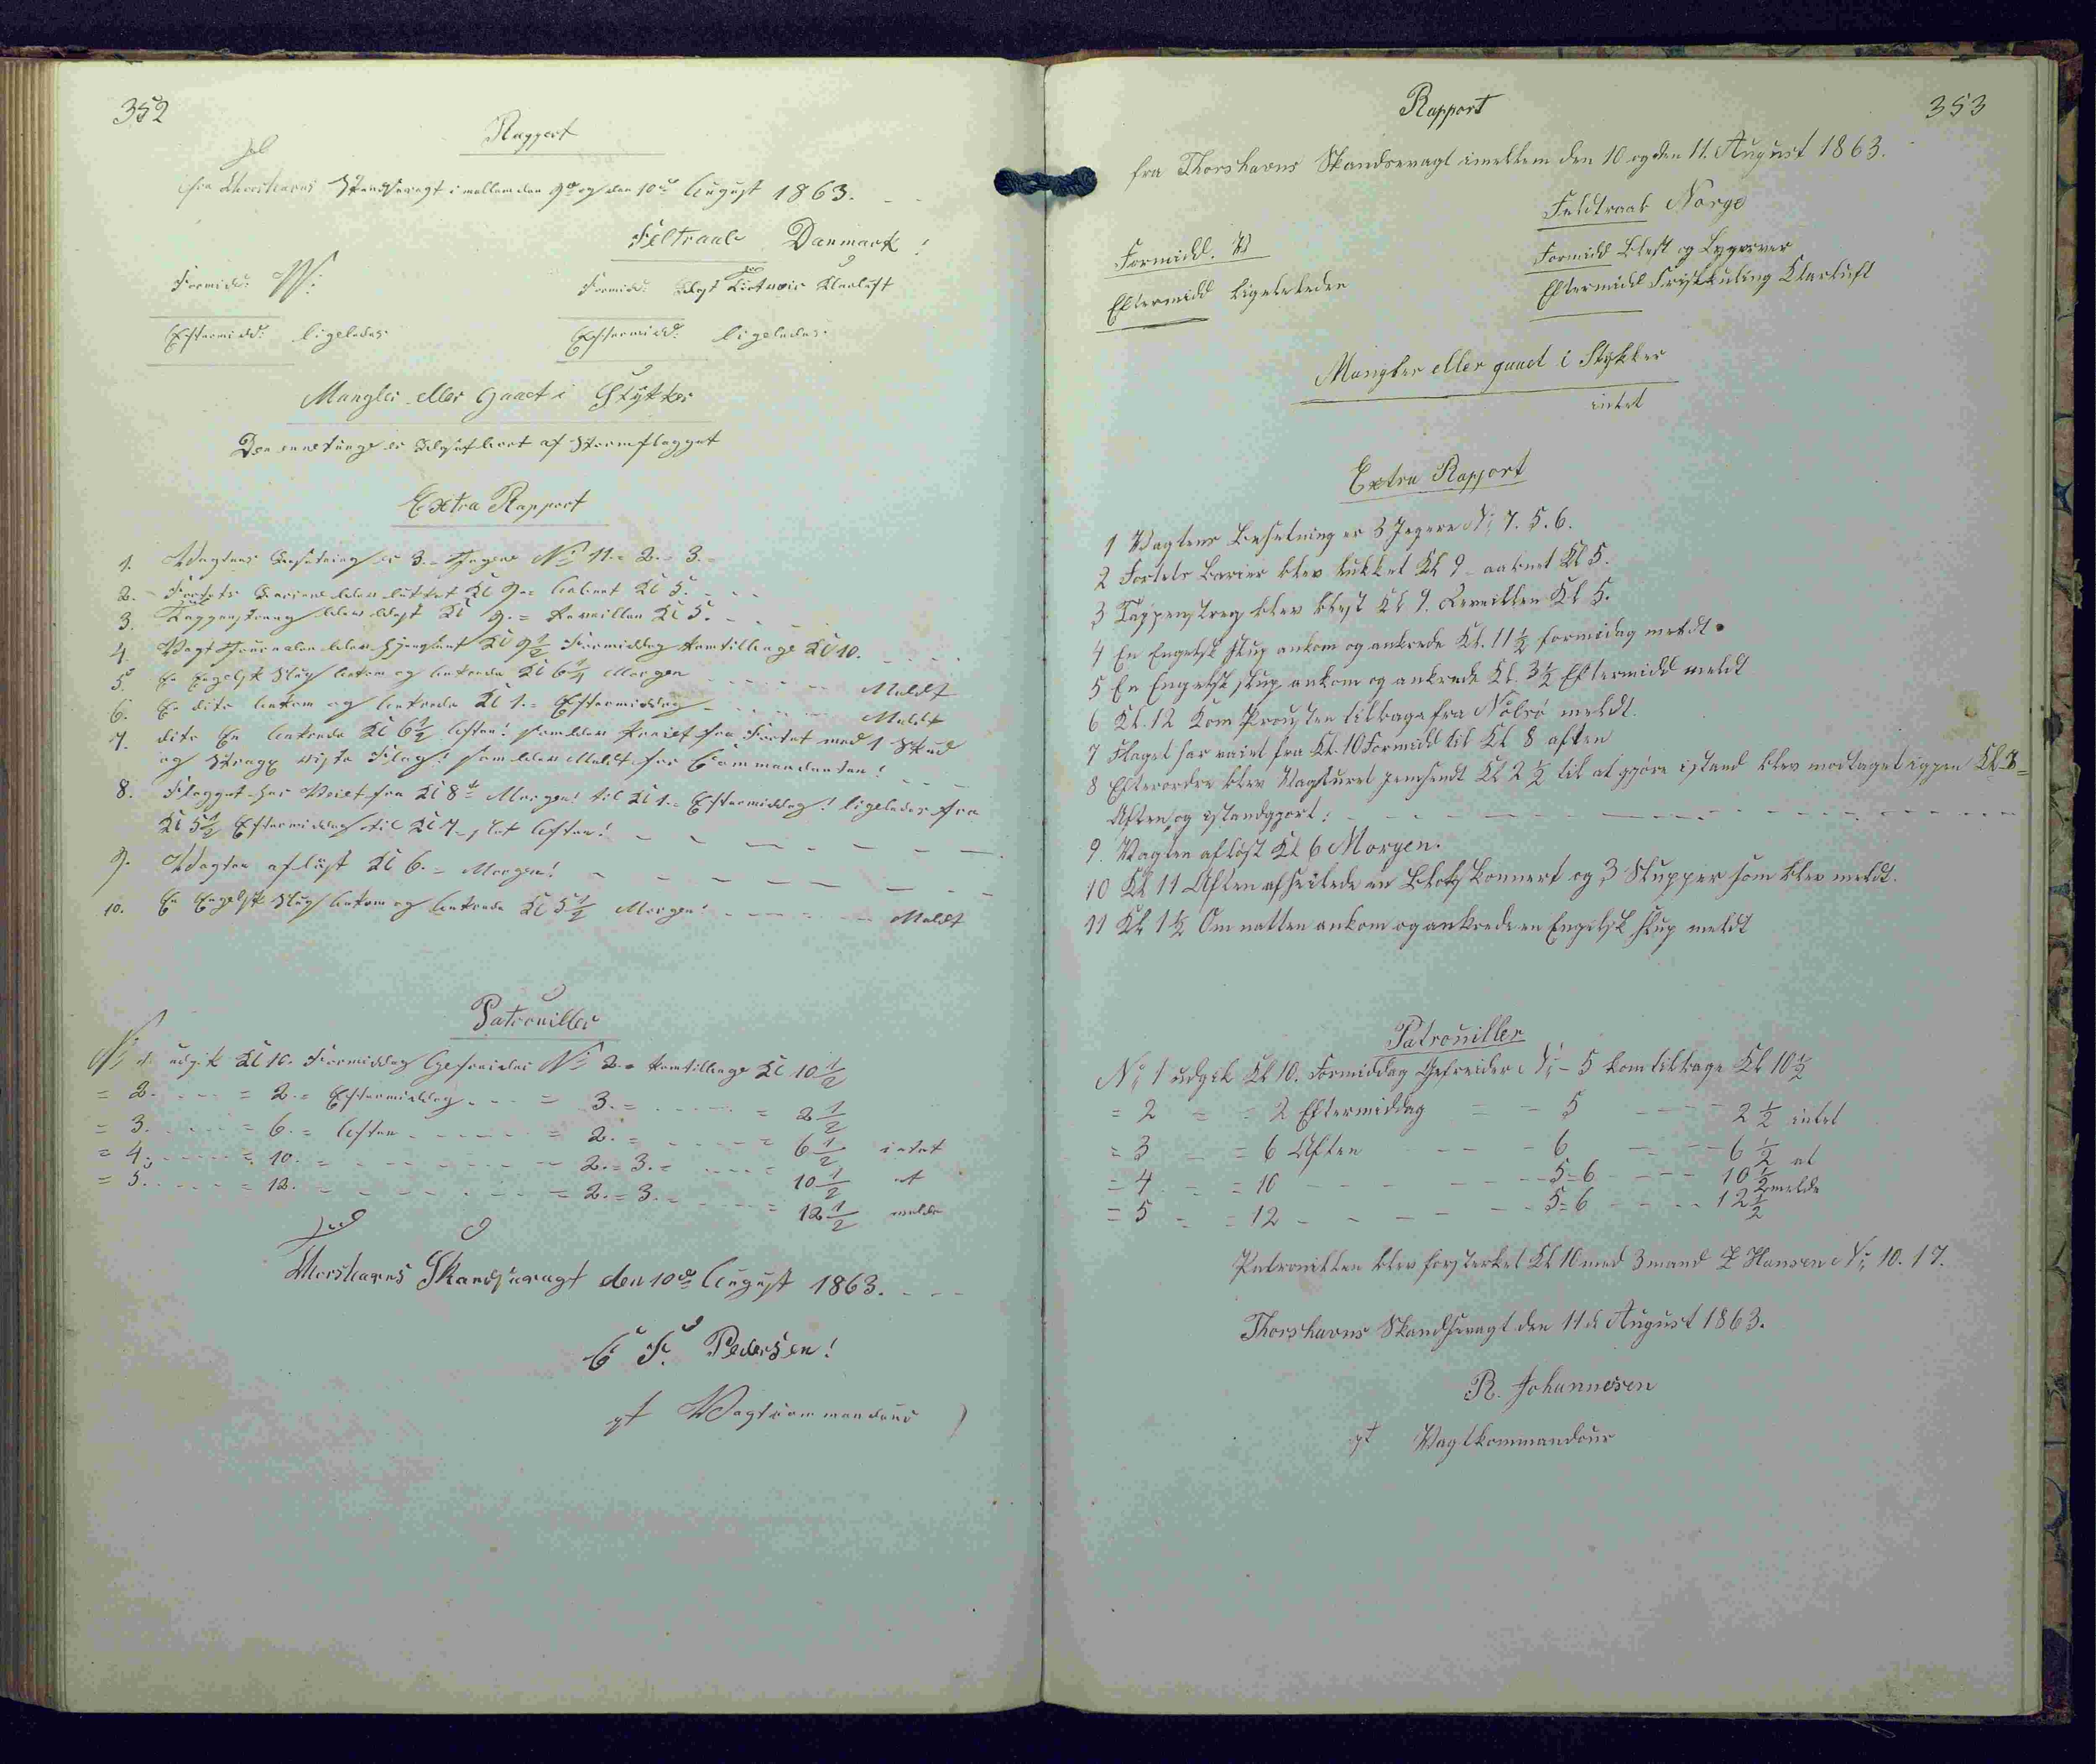 352
Rapport
fra Thorshavns Skandsevagt imellem den 9de og den 10de August 1863.
Feltraab Danmark!
Formidd: W:
Formidd: Klarluft
Eftermidd: ligeledes
Eftermidd: ligeledes
Mangler eller Gaaet i Stykker
Den ene tunge er af Stormflagget
Extra Rapport
1. Vagtens Besætning er 3. Jægere No 11. = 2. = 3. =
2. Fortets Bariere blev lukket Kl 9 = aabnet Kl 5.
3. Tappenstreng blev blæst Kl 9. = Reveillen Kl 5.
4. Vagt Journalen blev Kl 9 1/2 Formiddag kom tilbage Kl 10.
5. En Engelsk Slup ankom og ankrede Kl 6 1/4 Morgen Meldt
6. En dito ankom og ankrede Kl 1. = Eftermiddag Meldt
7. dito En ankrede Kl 6 1/2 Aften! som blev Preiet fra Fortet med 1 Skud
og viste Flag! som blev Meldt for Commandanten!
8. Flagget har Veiet fra Kl 8 Morgen! til Kl 1. = Eftermiddag! ligeledes fra
Kl 5 1/2 Eftermiddag til Kl 7 Aften!
9. Vagten afløst Kl 6. = Morgen!
10. En Engelsk Slup ankom og ankrede Kl 5 1/2 Morgen! Meldt
Patrouiller
No 1. udgik Kl 10. Formiddag Gefreider No 2. = kom tilbage Kl 10 1/2
= 2. = 2. = Eftermiddag = 3. = = 2 1/2
= 3. = 6. = Aften = 2. = = 6 1/2 intet
= 4. = 10. = = 2. = 3. = = 10 1/2 at
= 5. = 12. = 2. = 3. = 12 1/2 melde
Thorshavns Skandsevagt den 10de August 1863.
C F. Pedersen!
gt Vagtcommandeur
Rapport 353
fra Thorshavns Skandsevagt imellem den 10 og den 11. August 1863.
Feldtraab Norge
Formidd. W
Formidd Blæst og Bygevver
Eftermidd ligeleleden
Eftermidd Friskkuling Klarluft
Mangler eller gaaet i Stykker
intet
Extra Rapport
1 Vagtens Besetning er 3 Jegere No 7. 5. 6.
2 Fortets Barier blev lukket Kl 9 - aabnet Kl 5.
3 Tappenstreg blev blæst Kl 9. Reveillen Kl 5.
4 En Engelsk slup ankom og ankrede Kl. 11 1/2 formidag meldt.
5 En Engelsk slup ankom og ankrede Kl. 3 1/2 Eftermidd meldt
6 Kl. 12 Kom Prousten tilbage fra Nolsø meldt.
7 Flaget har vaiet fra Kl. 10 Formidd til Kl 8 aften
8 Efterordre blev Vagturet hensendt Kl 2 1/2 til at gjøre istand blev modtaget iggen Kl 8 =
Aften og istandgjort:
9. Vagten afløst Kl 6 Morgen.
10 Kl 11 Aften afseilede en Konnert og 3 Slupper som blev meldt.
11 Kl 1 1/2 Om natten ankom og ankrede en Engelsk slup meldt
Patrouiller
No 1 udgik Kl 10. Formiddag Gefreider No - 5 kom tilbage Kl 10 1/2
= 2 = = 2 Eftermiddag = - 5 2 1/2 intet
= 3 = = 6 Aften 6 6 1/2 at
= 4 = = 10 5 = 6 10 1/2 melde
= 5 = = 12 5 = 6 12 1/2
Patrouillen blev forsterket Kl 10 med 3 mand Hansen No 10. 17.
Thorshavns Skandsevagt den 11d August 1863.
R. Johannesen
gt Vagtkommandeur